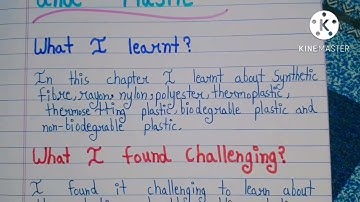 and Plastic
K
KINEMASTER
What I learnt?
In this chapter I learnt about Synthetic
fibre, rayon, nylon, polyester, thermoplastic,
thermose tting plastic, biodegrable plastic and
non-biodegrable plastic.
What I found challenging?
I found it challenging to learn about
the